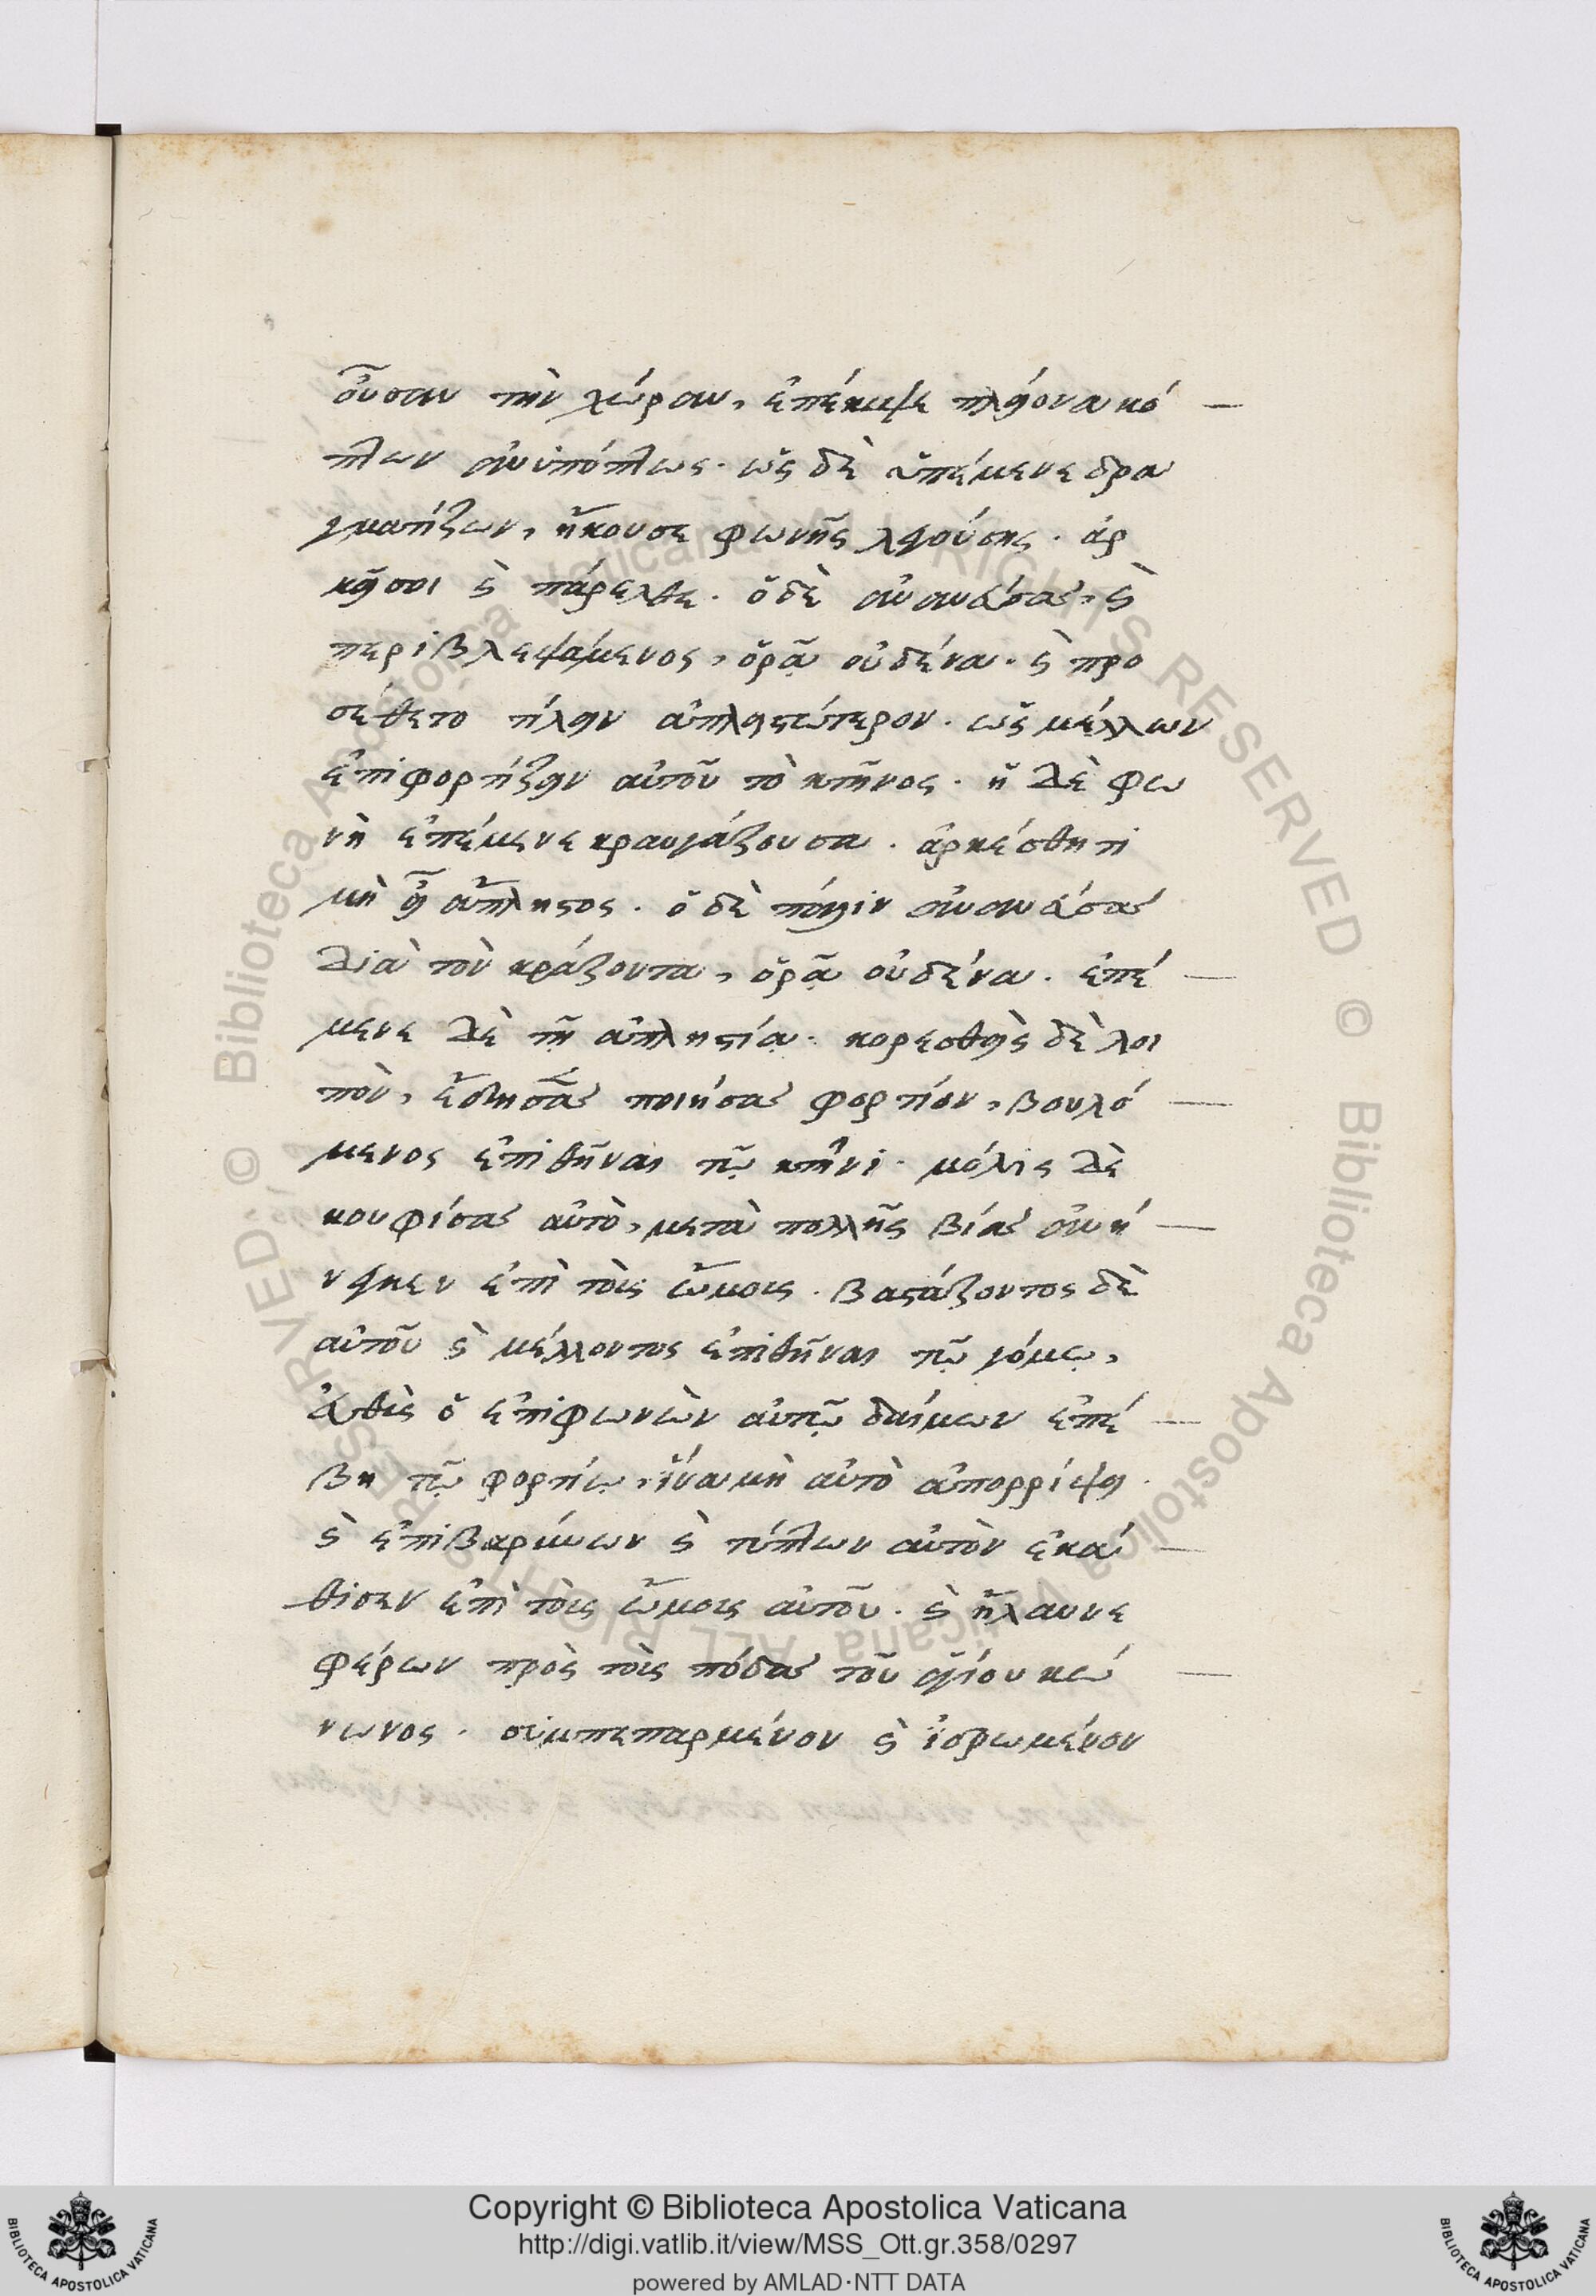 οὖσαν τὴν χώραν, ἐπέκυψε πλείονα κό
πτων ἀνυπόπτως. ὡς δὲ ὑπέμενε δρα
γματίζων, ἤκουσε φωνῆς λεγούσης. ἀρ
κεῖ σοι καὶ πάρελθε. ὁ δὲ ἀναστὰς, καὶ
περιβλεψάμενος, ὁρᾷ οὐδένα. καὶ προ
σέθετο τίλλειν ἀπληστώτερον. ὡς μέλλων
ἐπιφορτίζειν αὐτοῦ τὸ κτῆνος. ἡ δὲ φω
νὴ ἐπέμενε κραυγάζουσα. ἀρκέσθητι
μὴ εἶ ἄπληστος. ὁ δὲ πάλιν ἀναστὰς
διὰ τὸν κράζοντα, ὁρᾷ οὐδένα. ἐπέ
μενε δὲ τῇ ἀπληστίᾳ. κορεσθεὶς δὲ λοι
πὸν, ποιήσας φορτίον, βουλό
μενος ἐπιθῆναι τῷ κτήνι. μόλις δὲ
κουφίσας αὐτὸ, μετὰ πολλῆς βίας ἀνή
νεγκεν ἐπὶ τοῖς ὤμοις. βαστάζοντος δὲ
αὐτοῦ καὶ μέλλοντος ἐπιθῆναι τῷ γόμῳ,
εὐθὺς ὁ ἐπιφωνῶν αὐτῷ δαίμων ἐπέ
βη τῷ φορτίῳ, ἵνα μὴ αὐτὸ ἀπορρίψῃ.
καὶ ἐπιβαρύνων καὶ τύπτων αὐτὸν ἐκά
θισεν ἐπὶ τοῖς ὤμοις αὐτοῦ. καὶ ἤλαυνε
φέρων πρὸς τοὺς πόδας τοῦ ἁγίου κώ
νωνος. συμπεπαρμένον καὶ ἱδρωμένον
Copyright © Biblioteca Apostolica Vaticana
http://digi.vatlib.it/view/MSS_Ott.gr.358/0297
powered by AMLAD·NTT DATA
BIBLIOTECA APOSTOLICA VATICANA
BIBLIOTECA APOSTOLICA VATICANA